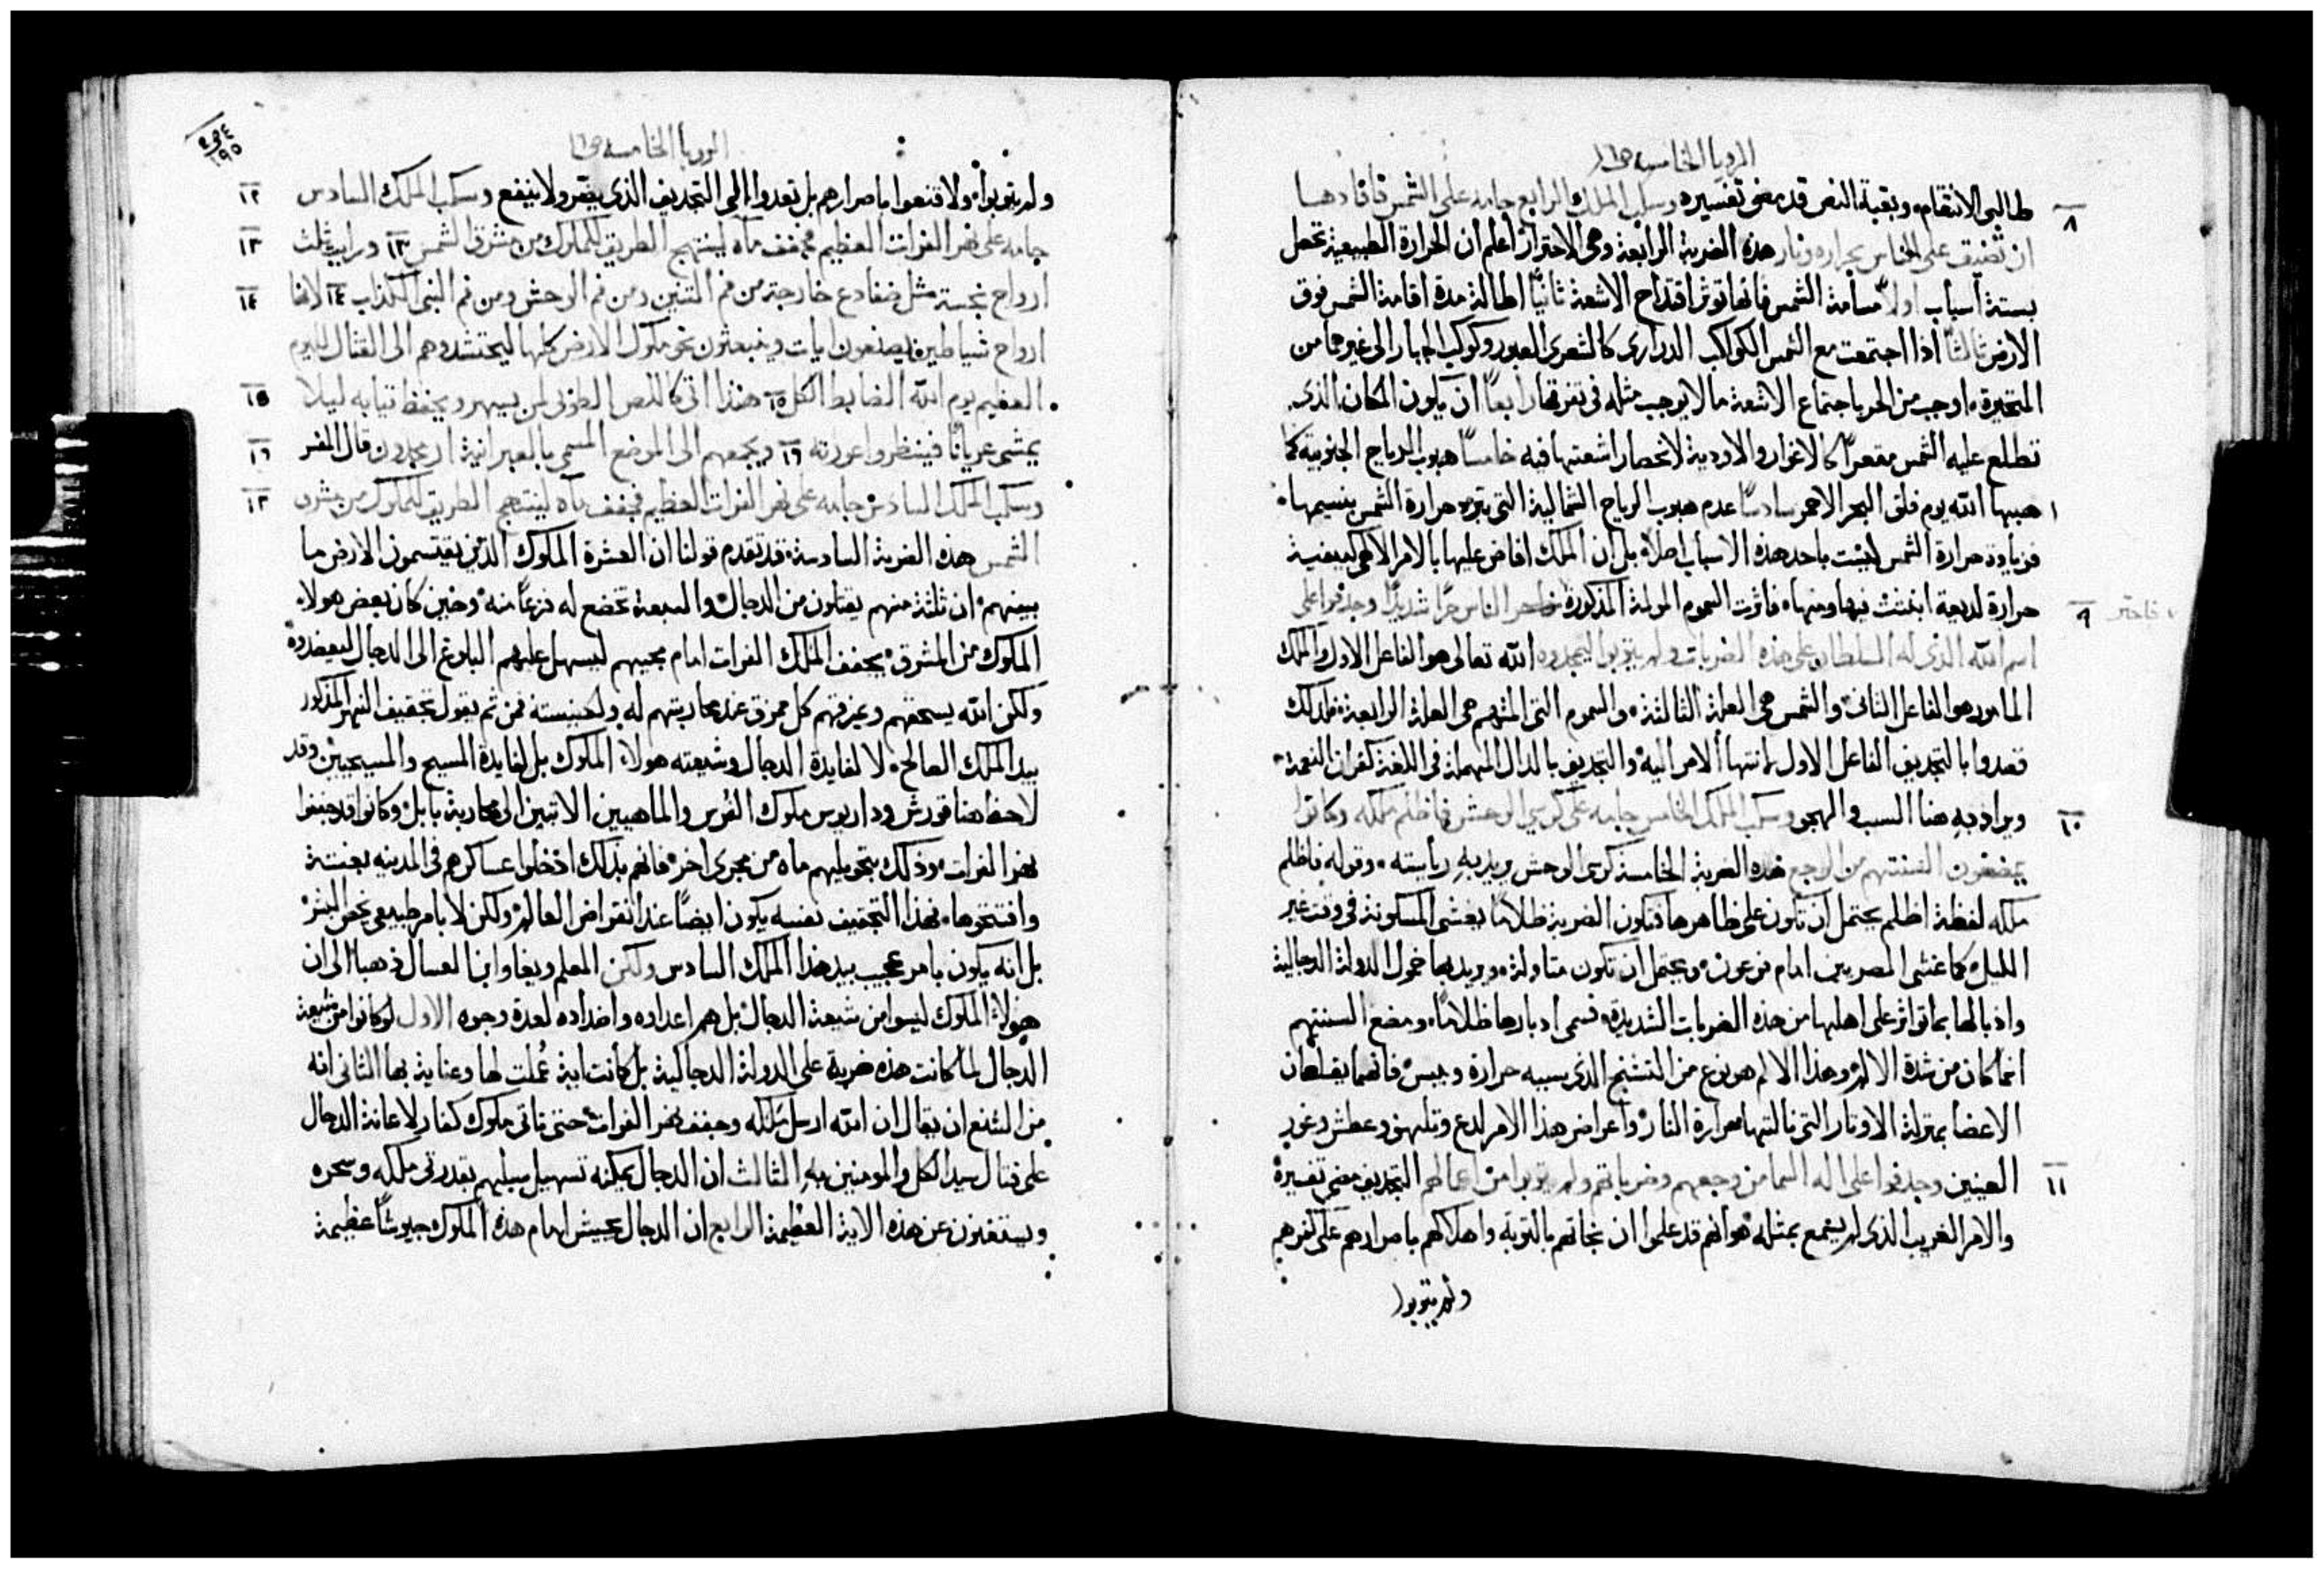 الرويا الخامسه ص١٦
طالبى الانتقام، وبقية النص قد مضى تفسيره وسكب الملك الرابع جامه على الشمس فاقادها
٨
ان تضيق على الناس بحراره ونار هذه الضربة الرابعة وهى الاحتراق اعلم ان الحرارة الطبيعية تحصل
بستة أسباب اولاً مسامتة الشمس فانها توثر اقتداح الاشعة ثانيًا اطالة مدة اقامة الشمس فوق
الارض ثالثًا اذا اجتمعت مع الشمس الكواكب الدرارى كالشعرى العبور وكوكب الجبار الى غيرها من
المتحيرة، اوجب من الحر باجتماع الاشعة ما لا يوجب مثله فى تفرقها رابعًا ان يكون المكان الذى
تطلع عليه الشمس مقعرًا كالاغوار والاودية لانحصار اشعتها فيه خامسًا هبوب الرياح الجنوبية كما
اهبها الله يوم فلق البحر الاحمر سادسًا عدم هبوب الرياح الشمالية التى تبرد حرارة الشمس بنسيمها
فزيادة حرارة الشمس ليست باحد هذه الاسباب اصلاً، بل ان الملك افاض عليها بالامر الالهى كيفية
حرارة لديعة انبثت فيها ومنها، فاثرت السموم المولمة المذكورة فاحتر الناس حرًا شديدًا وجدفوا على
٩ فاحتر
اسم الله الذى له السلطان على هذه الضربات ولم يتوبوا ليمجدوه الله تعالى هو الفاعل الاول والملك
المامور هو الفاعل الثانى والشمس هى العلة الثالثة، والسموم التى المتهم هى العلة الرابعة، فلذلك
قصدوا بالتجديف الفاعل الاول لانتها الامر اليه، والتجديف بالدال المهملة فى اللغة كفران النعمة
ويراد به هنا السب والهجو وسكب الملك الخامس جامه على كرسى الوحش فاظلم ملكه وكانوا
١٠
يمضغون السنتهم من الوجع هذه الضربة الخامسة كرسى الوحش يريد به رياسته، وقوله فاظلم
ملكه لفظة اظلم يحتمل ان تكون على ظاهرها فتكون الضربة ظلامًا يغشى المسكونة فى وقت غير
الليل، كما غشى المصريين امام فرعون، ويحتمل ان تكون متاولة، ويريد بها خمول الدولة الدجالية
واذبالها بما تواتر على اهلها من هذه الضربات الشديدة، فسمى ادبارها ظلامًا، ومضغ السنتهم
انما كان من شدة الالم، وهذا الالم هو نوع من التشنج الذى سببه حرارة ويبس، فانهما يقلصان
الاعضا بمنزلة الاوتار التى نالتها حرارة النار، واعراض هذا الامر لدع وتلهف وعطش وغور
العينين وجدفوا على اله السما من وجعهم وضرباتهم ولم يتوبوا من اعمالهم التجديف مضى تفسيره
١١
والامر الغريب الذى لم يسمع بمثله، هو انهم قد علموا ان نجاتهم بالتوبة واهلاكهم باصرارهم على كفرهم
ولم يتوبوا
١٩٥
الرويا الخامسه ص١٦
ولم يتوبوا، ولا قنعوا باصرارهم بل تعدوا الى التجديف الذى يضر ولا ينفع وسكب الملك السادس
١٢
جامه على نهر الفرات العظيم فجفف ماه لينتهج الطريق للملوك من مشرق الشمس ١٣ ورايت ثلث
١٣
ارواح نجسة مثل ضفادع خارجة من فم التنين ومن فم الوحش ومن فم النبى الكذاب ١٤ لانها
١٤
ارواح شياطين يصنعون ايات وينبعثون نحو ملوك الارض كلها ليحتشدوهم الى القتال لليوم
العظيم يوم الله الضابط الكل ١٥ هنذا اتى كاللص الطوبى لمن يسهر ويحفظ ثيابه ليلا
١٥
يمشى عريانًا فينظروا عورته ١٦ ويجمعهم الى الموضع المسمى بالعبرانية ارمجدون قال المفسر
١٦
وسكب الملك السادس جامه على نهر الفرات العظيم فجفف ماه لينتهج الطريق للملوك من مشرق
١٢
الشمس هذه الضربة السادسة، قد تقدم قولنا ان العشرة الملوك الذين يقتسمون الارض ما
بينهم، ان ثلثة منهم يقتلون من الدجال، والسبعة تخضع له فزعًا منه، وحين كان بعض هولاء
الملوك من المشرق، يجفف الملك الفرات امام مجيهم ليسهل عليهم البلوغ الى الدجال ليعضدوه
ولكن الله يسحقهم ويمزقهم كل ممزق عند محاربتهم له ولكنيسته فمن ثم يقول تجفيف النهر المذكور
بيد الملك الصالح، لا لفايدة الدجال وشيعته هولاء الملوك بل لفايدة المسيح والمسيحيين وقد
لاحظ هنا قورش وداريوس ملوك الفرس والماهيين الاتيين الى محاربة بابل، وكانوا قد جففوا
نهر الفرات، وذلك بتحويلهم ماه من مجرى اخر، فانهم بذلك ادخلوا عساكرهم فى المدينه بغتة
وافتتحوها، فهذا التجفيف نفسه يكون ايضًا عند انقراض العالم، ولكن لا بامر طبيعى يخص البشر
بل انه يكون بامر عجيب بيد هذا الملك السادس ولكن المعلم ويغا وابن العسال ذهبا الى ان
هولاء الملوك ليسوا من شيعة الدجال، بل هم اعداوه واضداده لعدة وجوه الاول لو كانوا من شيعة
الدجال لما كانت هذه ضربة على الدولة الدجالية بل كانت اية عُملت لها وعناية بها الثانى انه
من الشنع ان يقال ان الله ارسل ملكه وجفف نهر الفرات حتى تاتى ملوك كفار لاعانة الدجال
على قتال سيد الكل والمومنين به الثالث ان الدجال يمكنه تسهيل سبيلهم بقدرتى ملكه وسحره
ويستغنون عن هذه الاية العظيمة الرابع ان الدجال يجيش امام هذه الملوك جيوشًا عظيمة